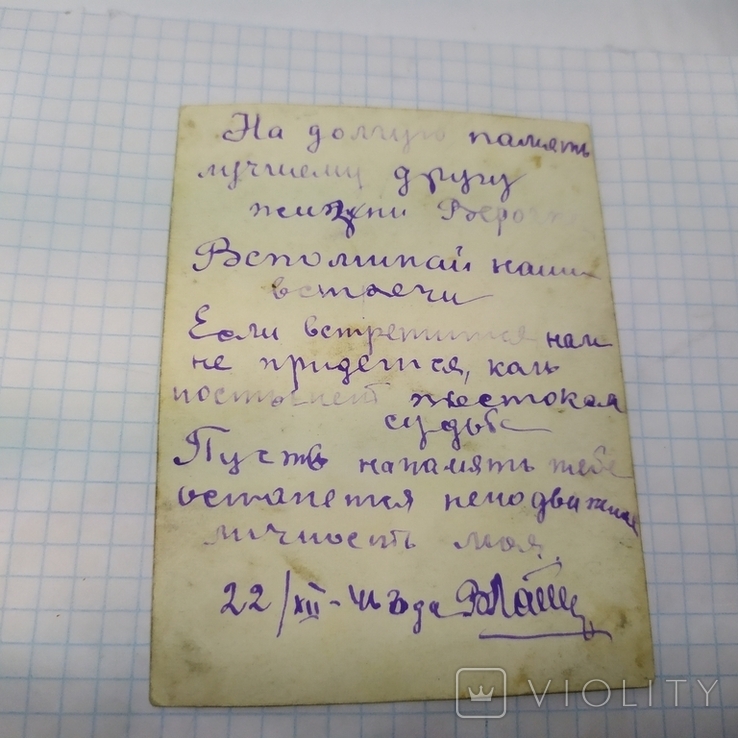 На долгую память
лучшему другу
жизни Верочке
Вспоминай наши
встречи
Если встретится нам
не придется, коль
постигнет жестокая
судьба
Пусть напамять тебе
останется неподвижная
личность моя.
22/XII-46 года
VIOLITY